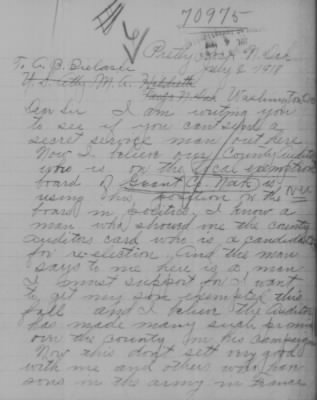 70975
Pretty Rock N. Dak
July 2 1918
To A. B. Bielaski
U. S. Atty. M. A. Hildreth
Fargo N. Dak Washington
Dear Sir I am writing you
to see if you can't send a
secret service man out here
Now I believe our County auditor
who is on the local exemption
board of Grant Co. N. Dak is
using his position on the
board in politics. I know a
man who showed me the county
auditors card who is a candidate
for re-election. And this man
says to me here is a man
I must support for I want
to get my son exempted this
fall and I believe the Auditor
has made many such promises
over the county in his campaign
Now this don't sett very good
with me and others who have
sons in the army in France